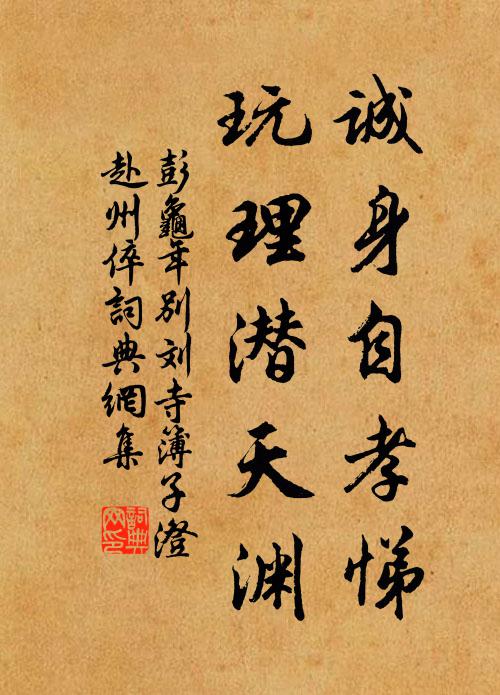 誠身自孝悌
玩理潜天渊
彭龜年别刘寺簿子澄
赴州倅詞典網集
詞典網印